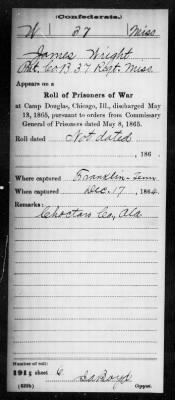 (Confederate.)
W 37 Miss.
James Wright
Pvt. Co. B 37 Regt. Miss.
Appears on a
Roll of Prisoners of War
at Camp Douglas, Chicago, Ill., discharged May
13, 1865, pursuant to orders from Commissary
General of Prisoners dated May 8, 1865.
Roll dated Not dated
, 186 .
Where captured Franklin Tenn
When captured Dec. 17, 1864.
Remarks:
Choctaw Co, Ala
Number of roll:
191; sheet 6
(639b) Copyist.